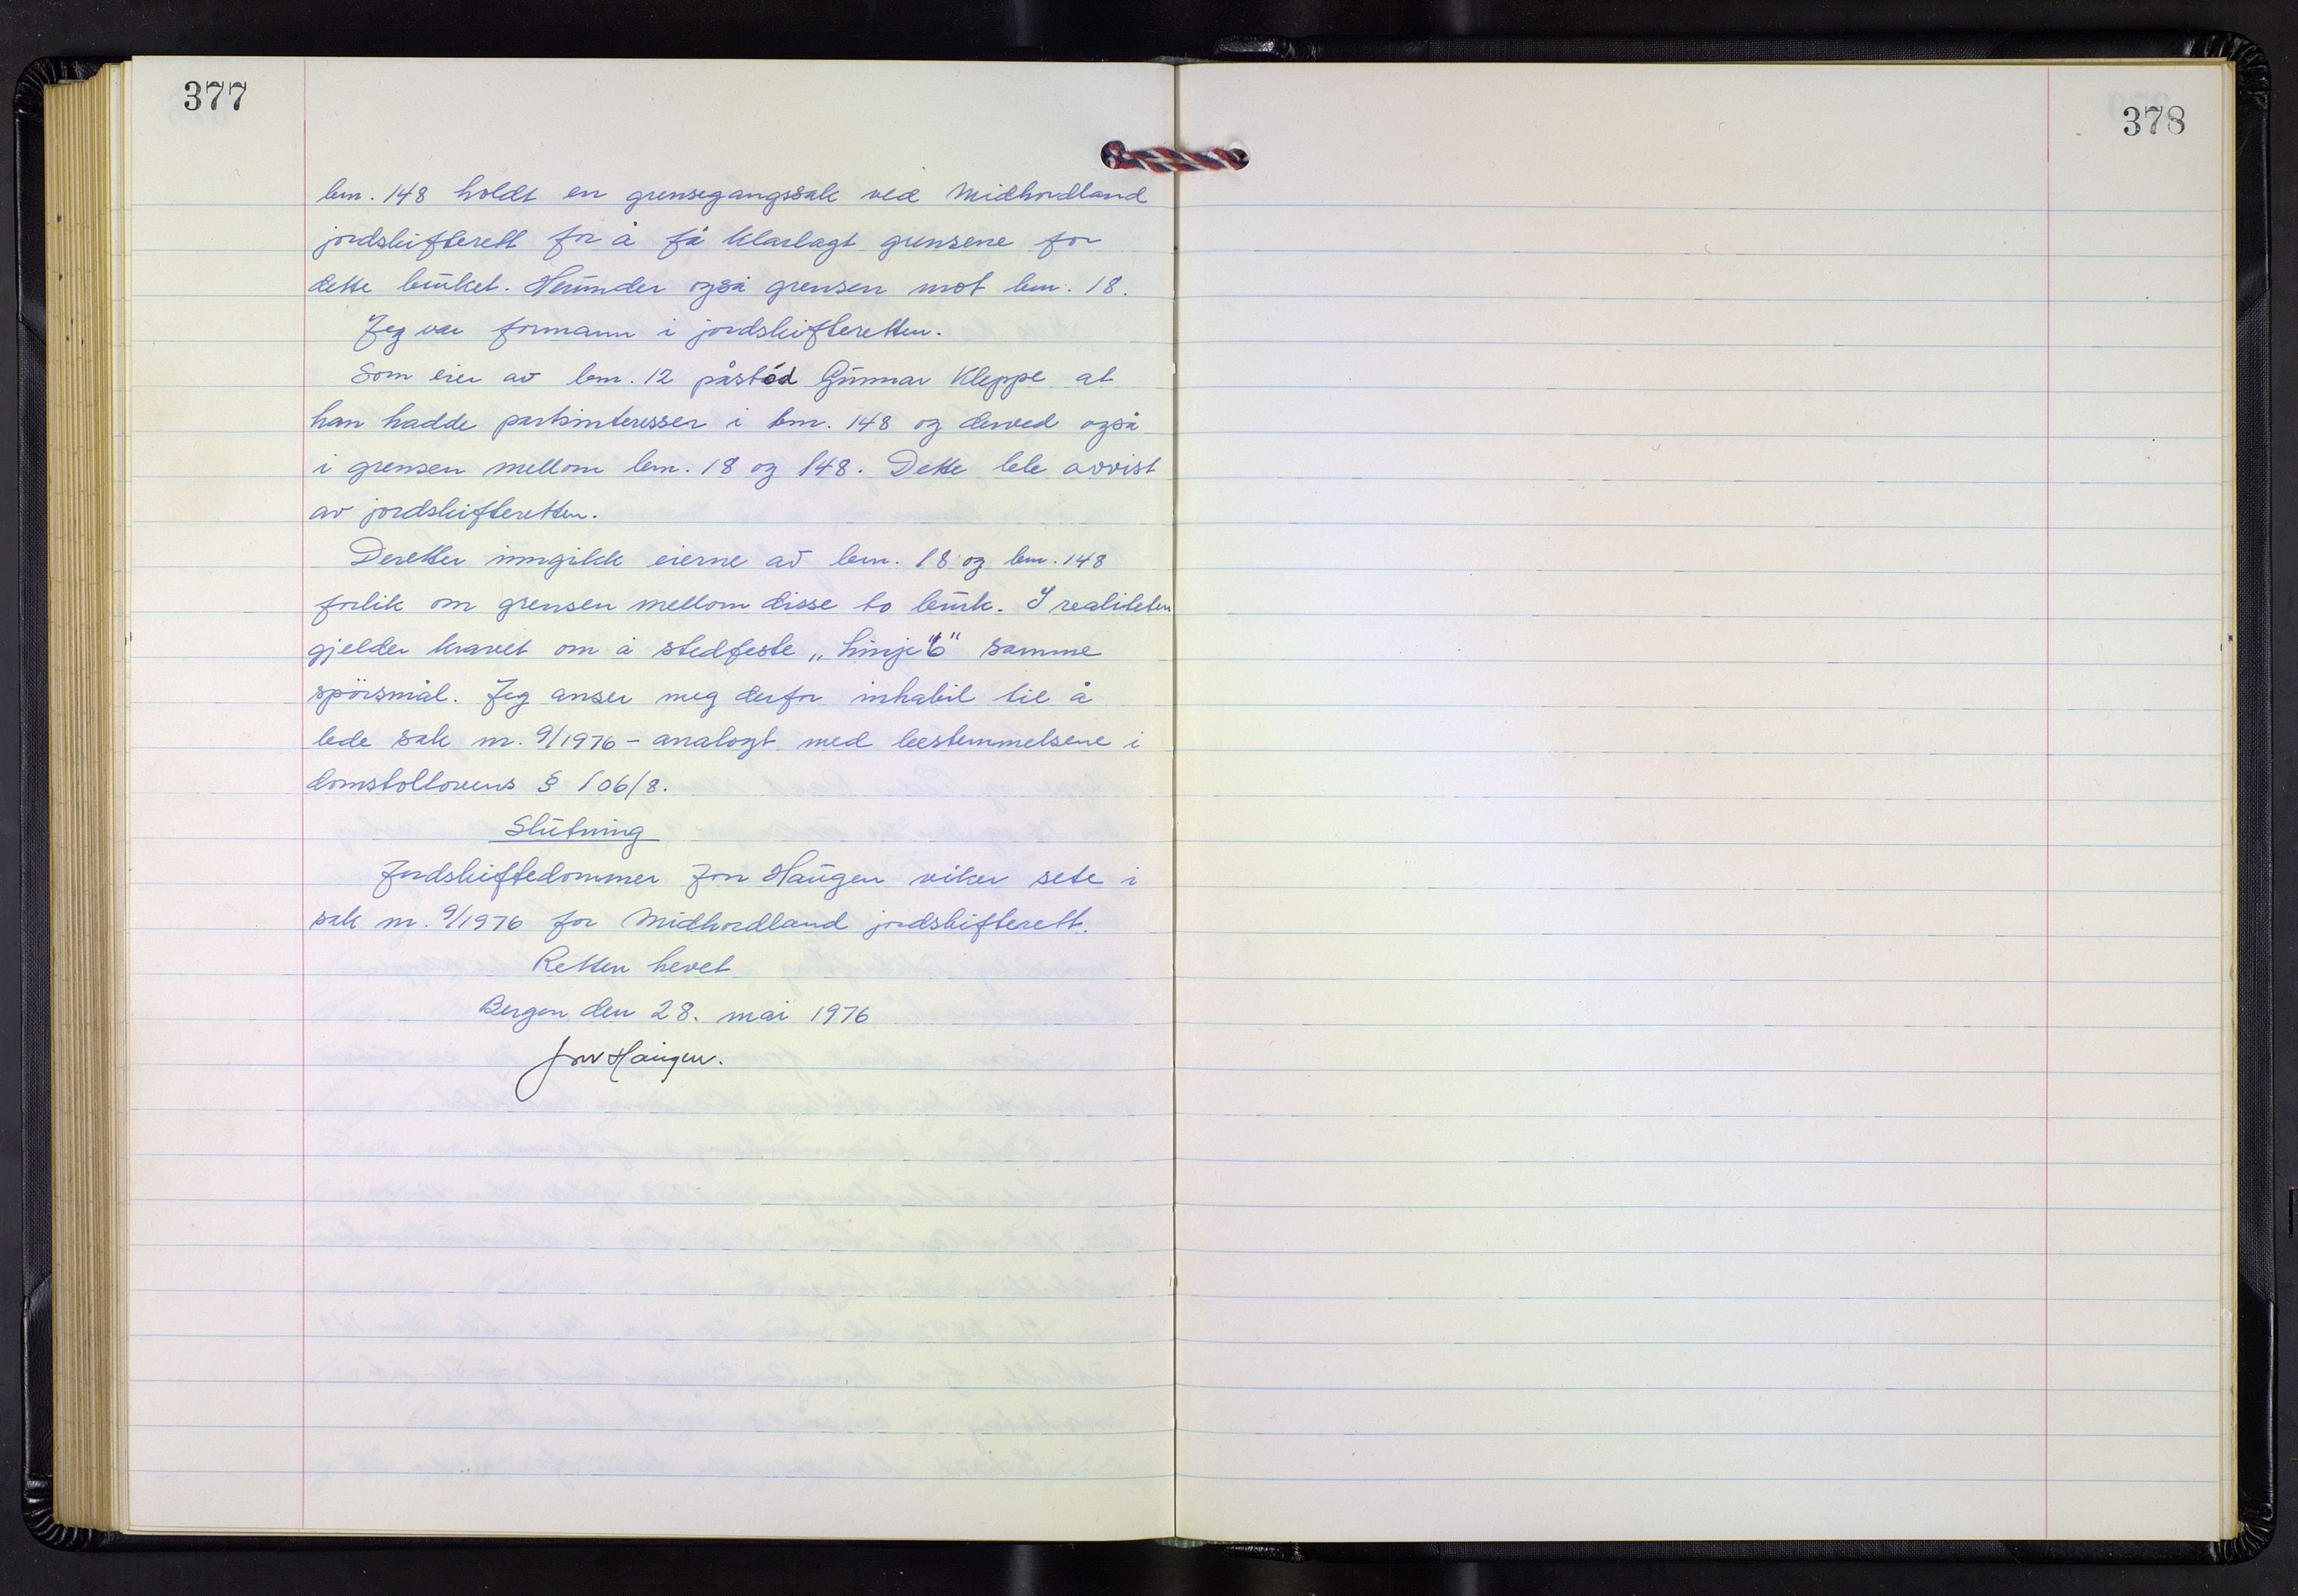 377
378
bnr. 148 holdt en grensegangssak ved Midhordland
jordskifterett for å få klarlagt grensene for
dette bruket. Herunder også grensen mot bnr. 18.
Jeg var formann i jordskifteretten.
Som eier av bnr. 12 påstod Gunnar Kleppe at
han hadde partsinteresser i bnr. 148 og derved også
i grensen mellom bnr. 18 og 148. Dette ble avvist
av jordskifteretten.
Deretter inngikk eierne av bnr. 18 og bnr. 148
forlik om grensen mellom disse to bruk. I realiteten
gjelder kravet om å stedfeste „Linje "6" samme
spørsmål. Jeg anser meg derfor inhabil til å
lede sak nr. 9/1976 - analogt med bestemmelsene i
domstollovens § 106/8.
Slutning
Jordskiftedommer Jon Haugen viker sete i
sak nr. 9/1976 for Midhordland jordskifterett.
Retten hevet
Bergen den 28. mai 1976
Jon Haugen.